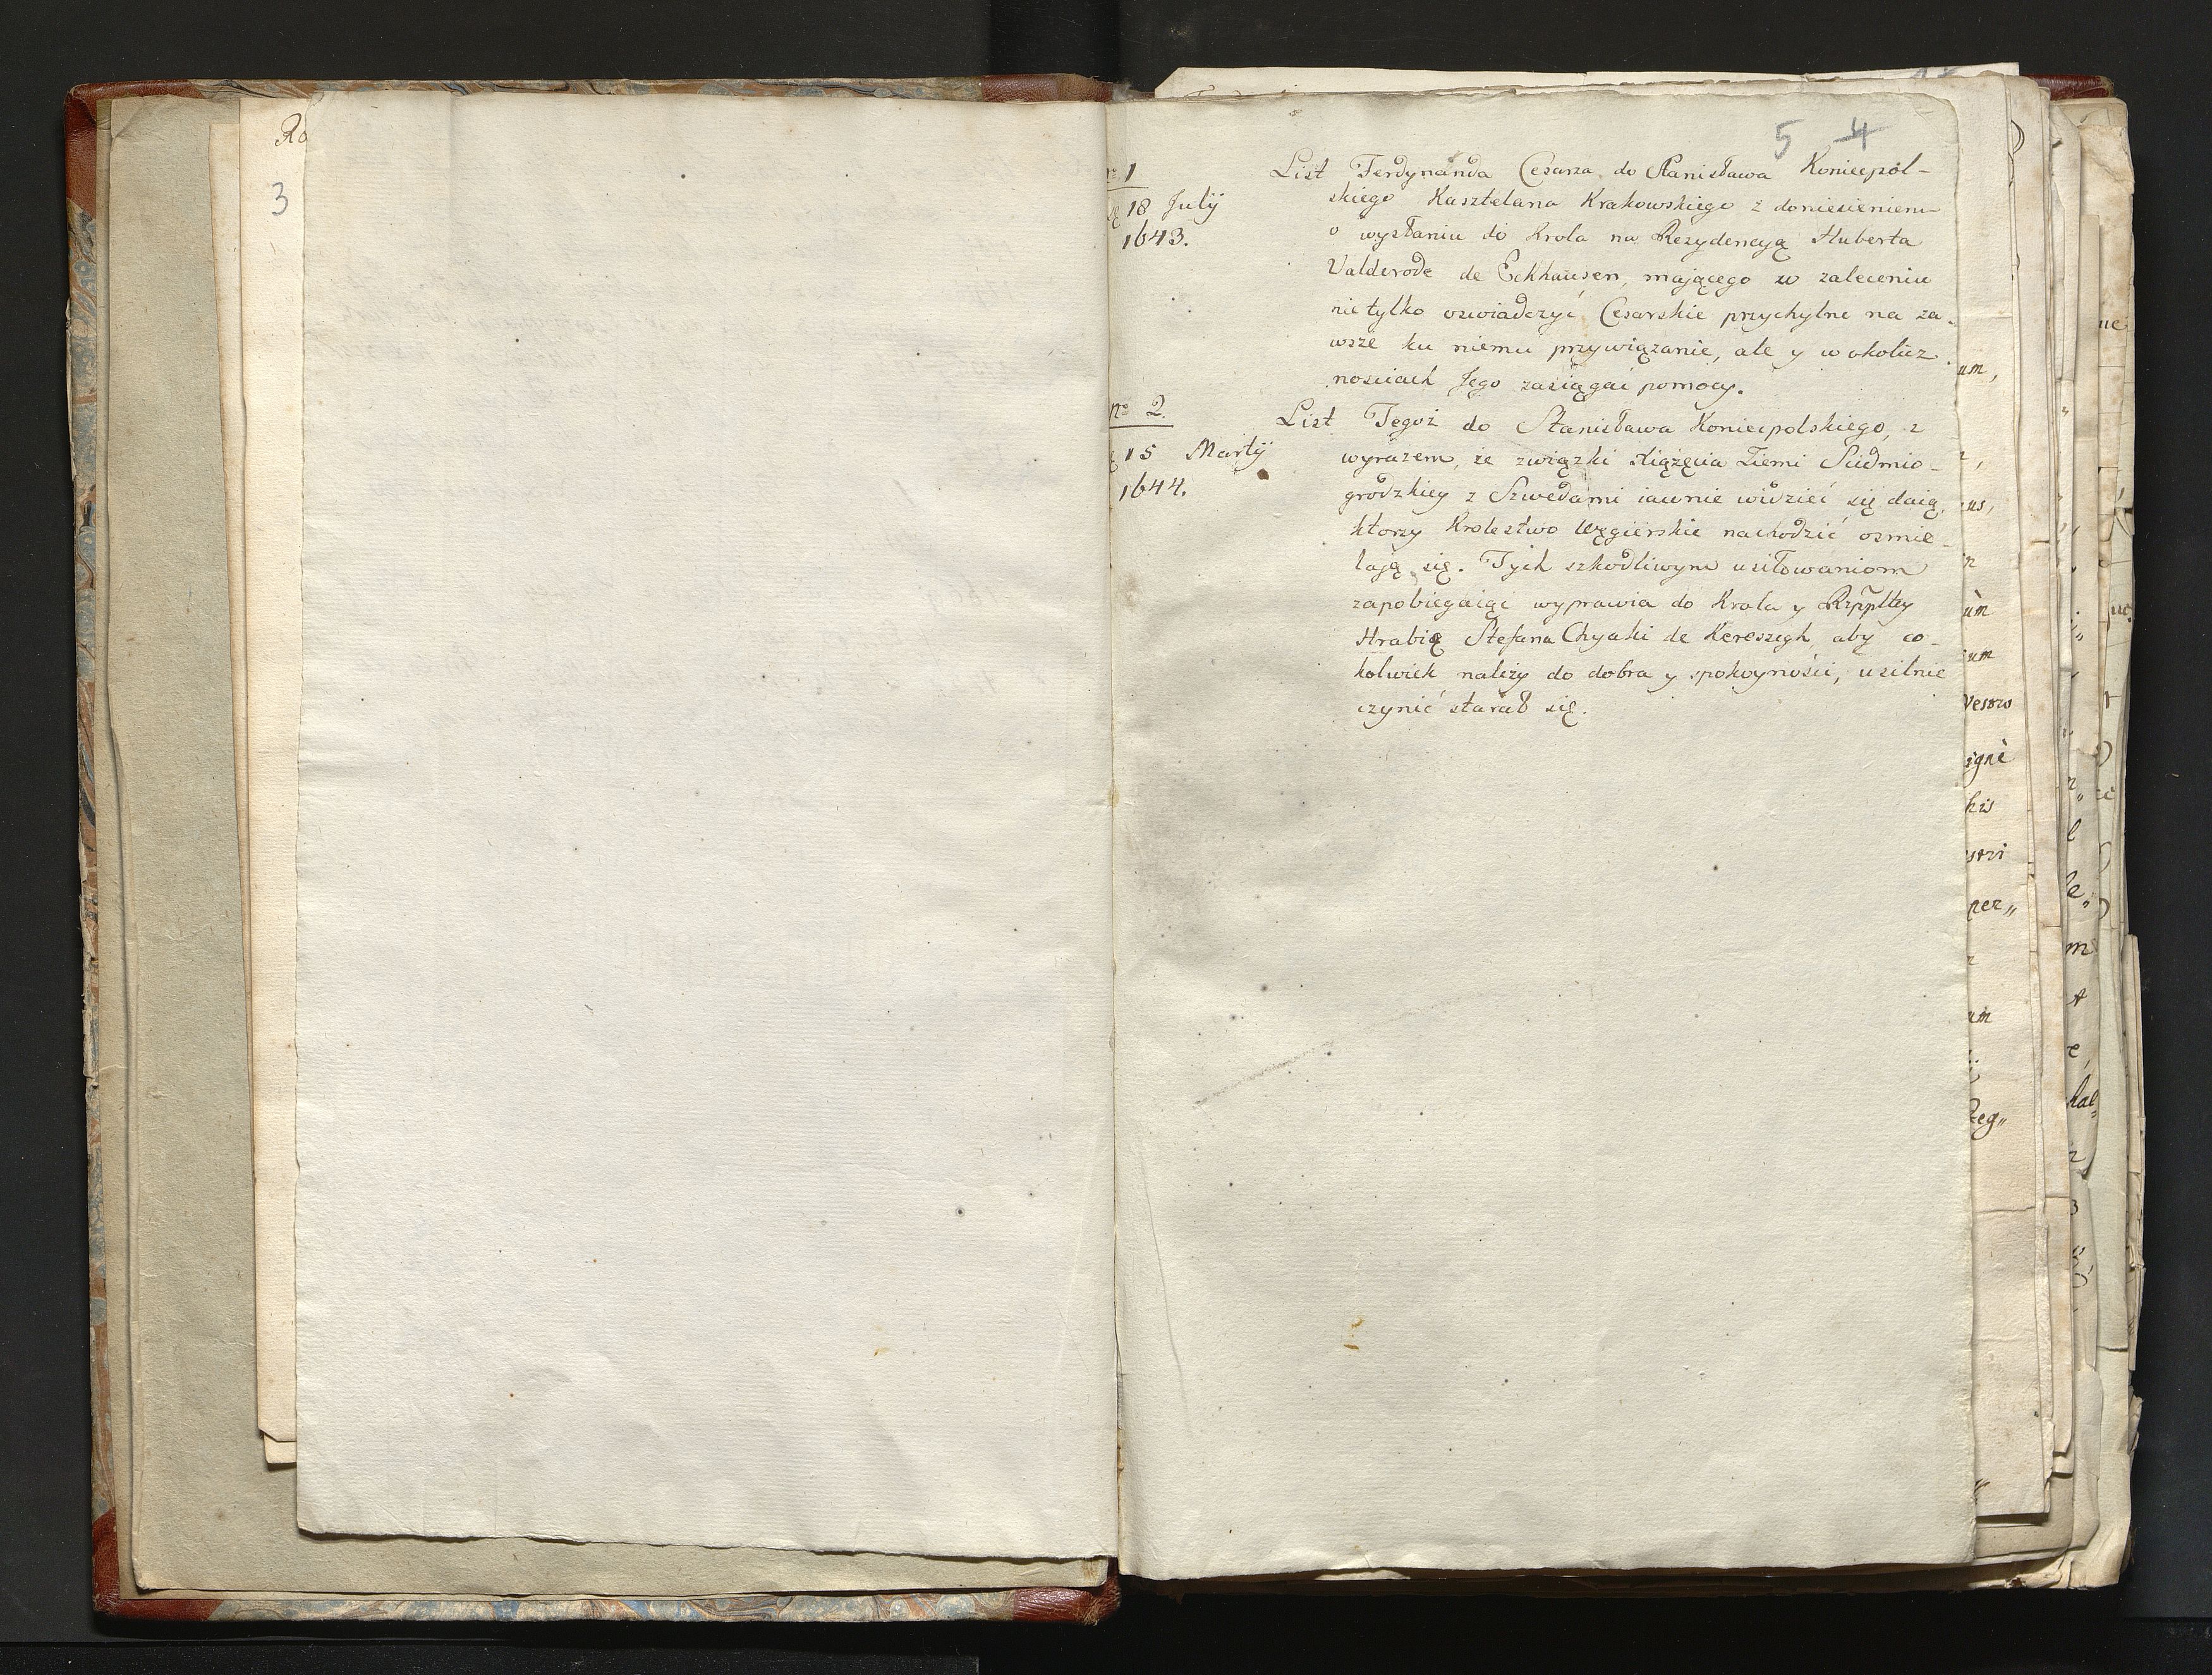 Ro
3
5 4
nº 1
18 Julij
1643.
List Ferdynanda Cesarza do Stanisława Koniecpol-
skiego Kasztelana Krakowskiego z doniesieniem
o wysłaniu do Krola na Rezydencyą Huberta
Valderode de Eckhausen, maiącego w zaleceniu
nie tylko oswiadczyć Cesarskie przychylne na za-
wsze ku niemu przywiązanie, ale y w okolicz-
nosciach Jego zasiągać pomocy.
nº 2.
15 Martij
1644.
List Tegoż do Stanisława Koniecpolskiego, z
wyrazem, że związki Xiążęcia Ziemi Siedmio-
grodzkiey z Szwedami iawnie widzieć się daią,
ktorzy Krolestwo Węgierskie nachodzić osmie-
lają się. Tych szkodliwym usiłowaniom
zapobiegaiąc wyprawia do Krola y Rzpltey
Hrabię Stefana Chyaki de Kereszegh, aby co-
kolwiek należy do dobra y spokoyności, usilnie
czynić starał się.
um,
us,
um
um
Vestro
igné
his
stri
per„
um
Reg„
le„
m
t
e,
hac